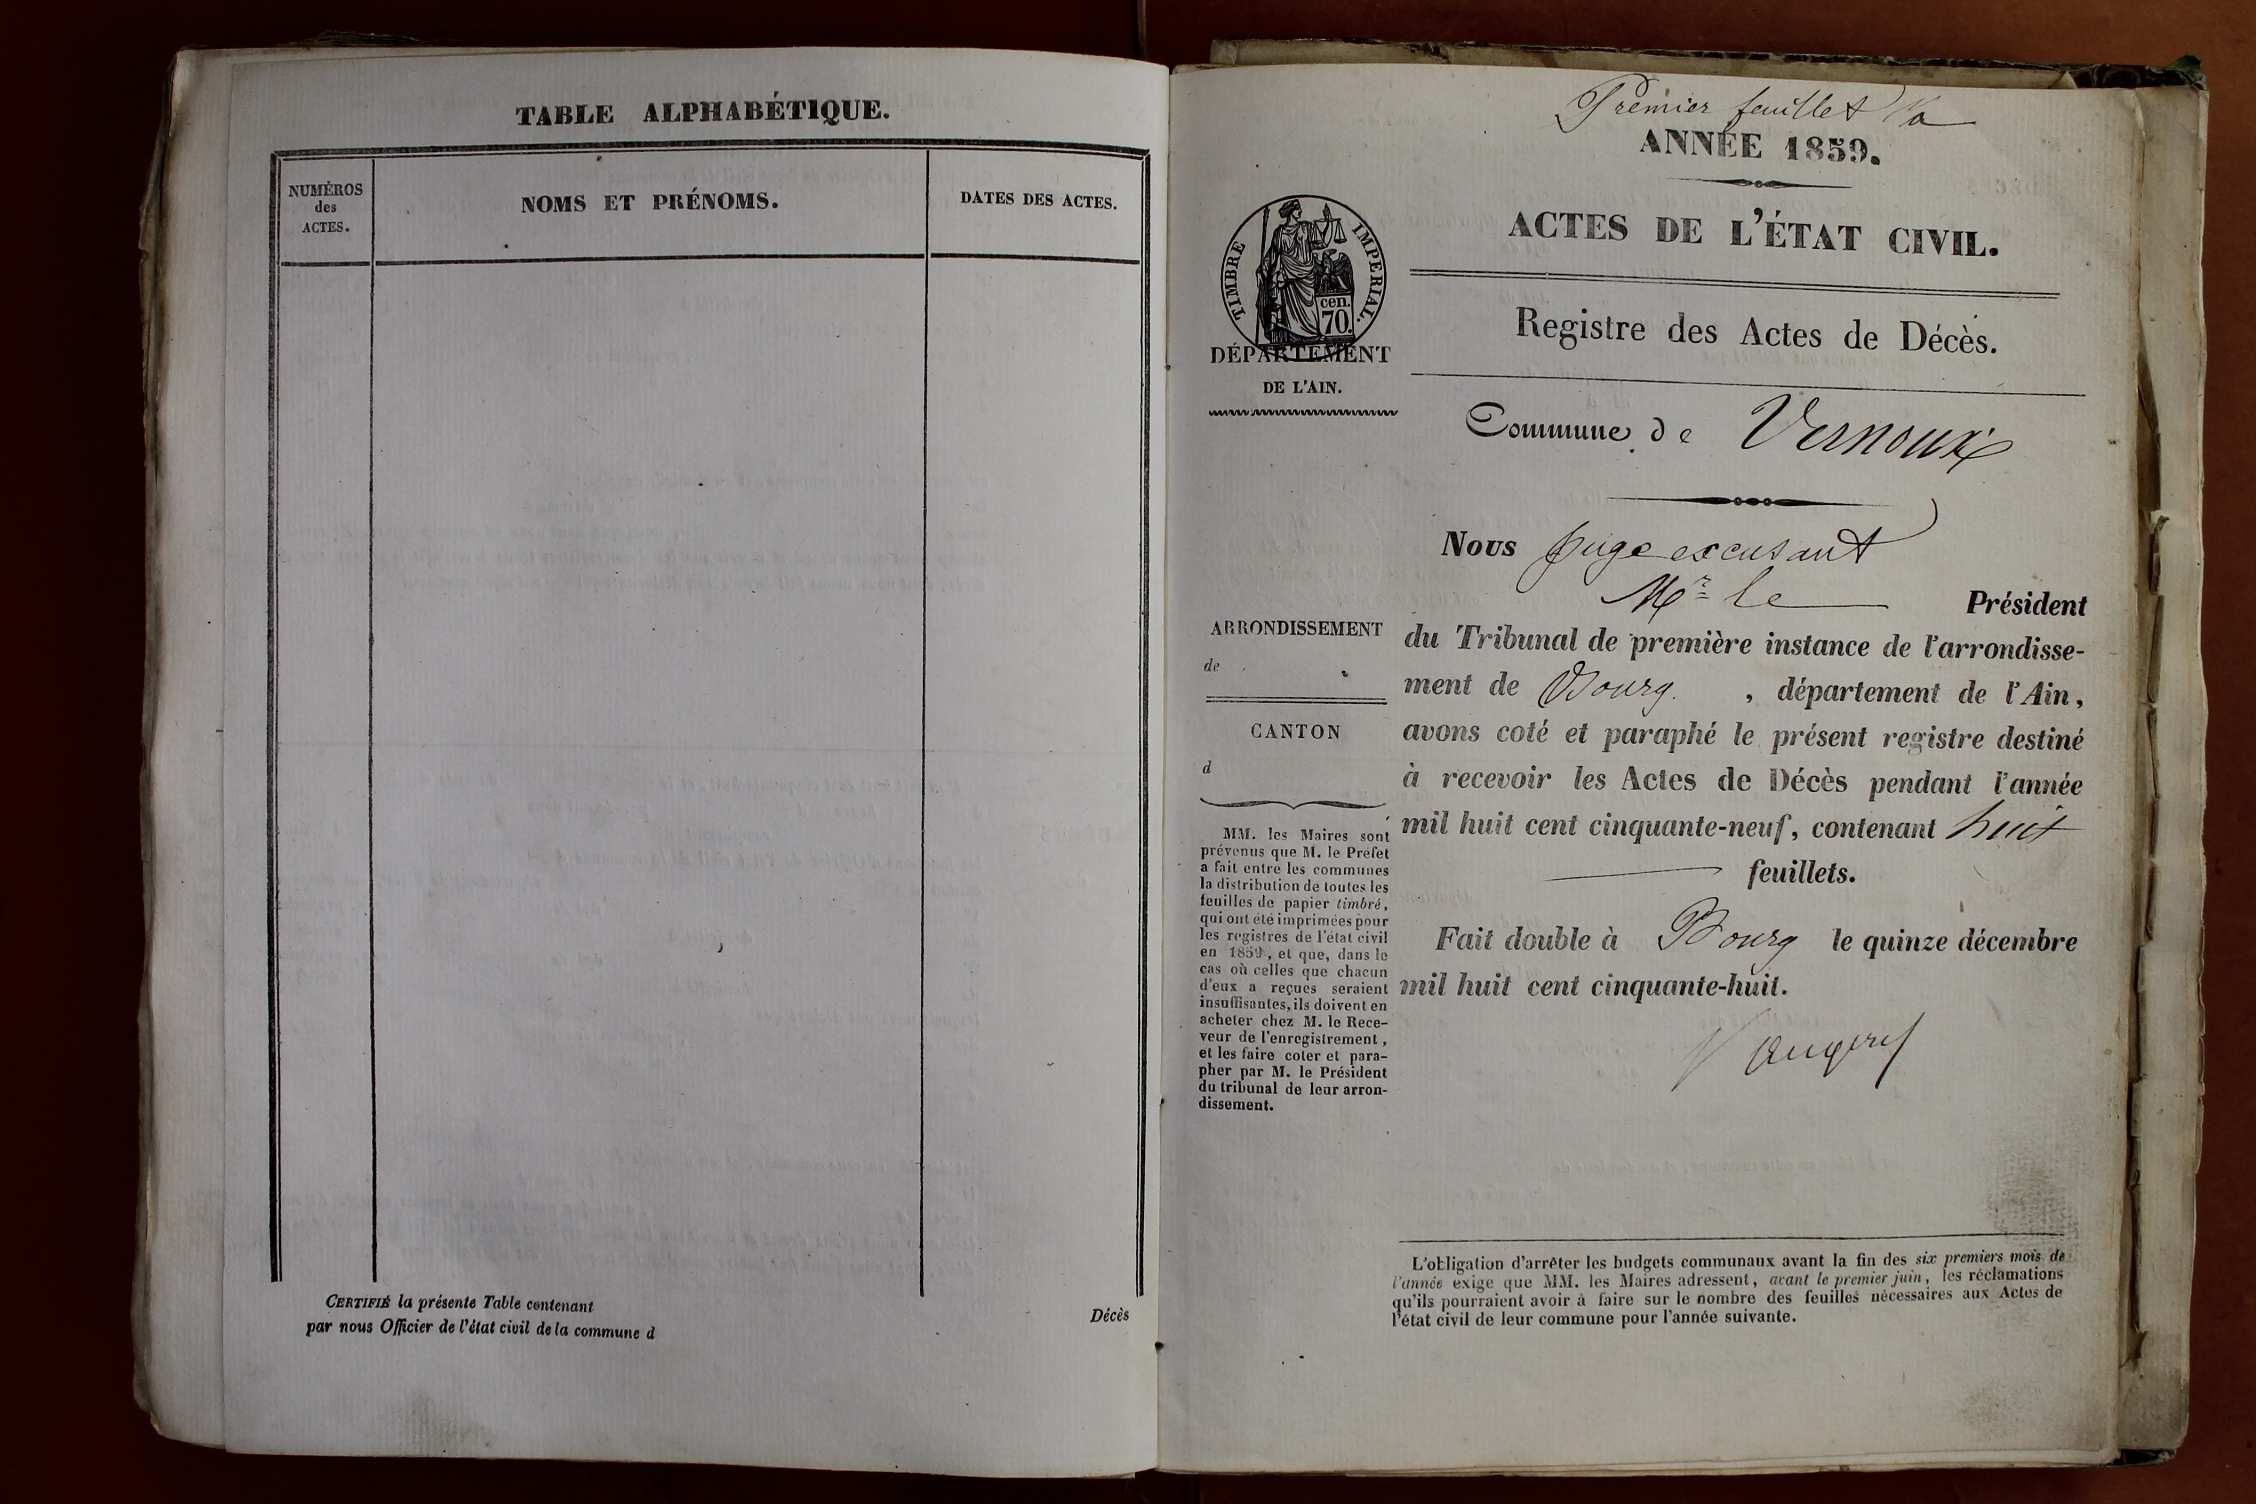 TABLE ALPHABÉTIQUE.
NUMÉROS
des
ACTES.
NOMS ET PRÉNOMS.
DATES DES ACTES.
CERTIFIÉ la présente Table contenant
Décès
par nous Officier de l'état civil de la commune d
Premier feuillet
ANNÉE 1859.
TIMBRE IMPERIAL.
cen.
70.
DÉPARTEMENT
DE L'AIN.
ACTES DE L'ÉTAT CIVIL.
Registre des Actes de Décès.
Commune de Vernoux
ARRONDISSEMENT
de
CANTON
d
MM. les Maires sont
prévenus que M. le Préfet
a fait entre les communes
la distribution de toutes les
feuilles de papier timbré,
qui ont été imprimées pour
les registres de l'état civil
en 1859, et que, dans le
cas où celles que chacun
d'eux a reçues seraient
insuffisantes, ils doivent en
acheter chez M. le Rece-
veur de l'enregistrement,
et les faire coter et para-
pher par M. le Président
du tribunal de leur arron-
dissement.
Nous Juge excusant
Mr le Président
du Tribunal de première instance de l'arrondisse-
ment de Bourg, département de l'Ain,
avons coté et paraphé le présent registre destiné
à recevoir les Actes de Décès pendant l'année
mil huit cent cinquante-neuf, contenant huit
feuillets.
Fait double à Bourg le quinze décembre
mil huit cent cinquante-huit.
L'obligation d'arrêter les budgets communaux avant la fin des six premiers mois de
l'année exige que MM. les Maires adressent, avant le premier juin, les réclamations
qu'ils pourraient avoir à faire sur le nombre des feuilles nécessaires aux Actes de
l'état civil de leur commune pour l'année suivante.